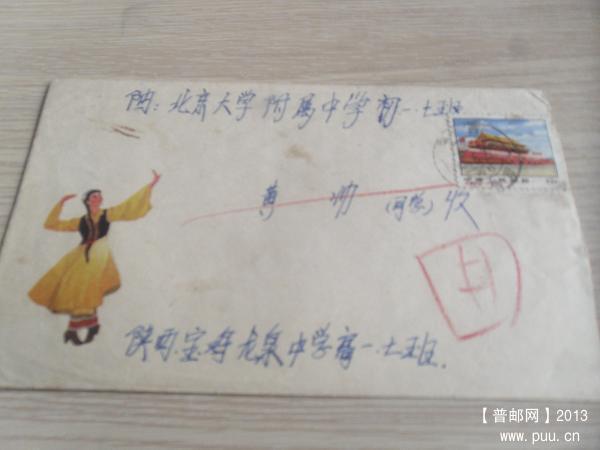 北京大学附属中学初一.七班
(同学)收
陕西.宝鸡龙泉中学高一.七班.
【普邮网】2013
www.puu.cn